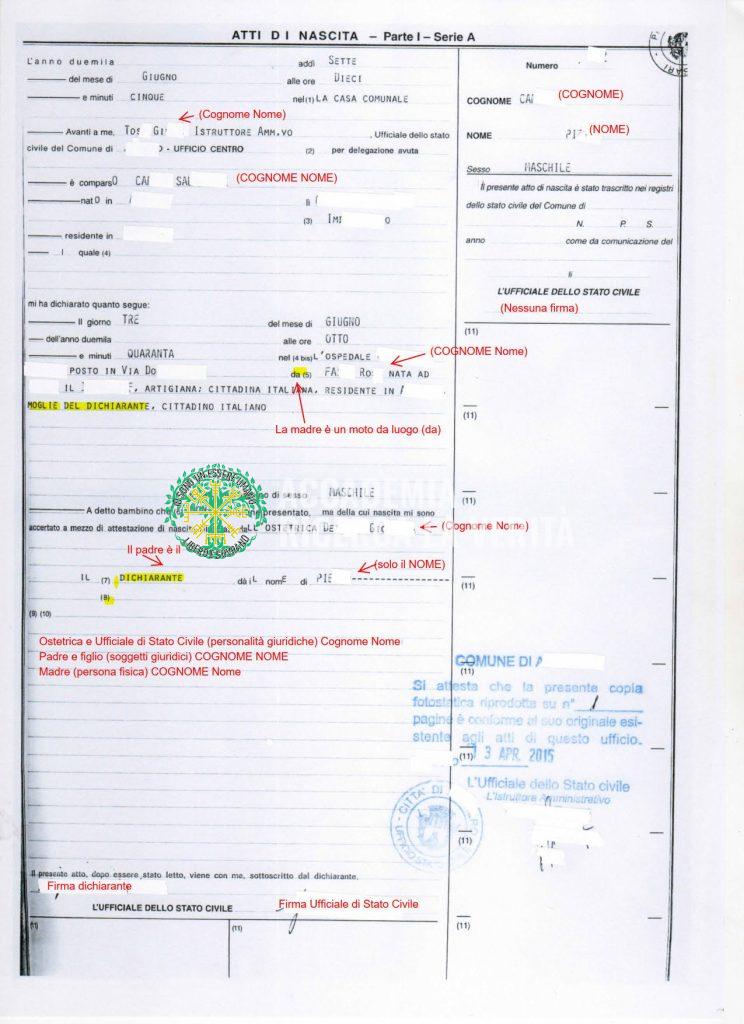 ATTI DI NASCITA – Parte I – Serie A
L'anno duemila addì SETTE
del mese di GIUGNO alle ore DIECI
e minuti CINQUE nel(1) LA CASA COMUNALE
(Cognome Nome)
Avanti a me, TOS GI ISTRUTTORE AMM.VO , Ufficiale dello stato
civile del Comune di O - UFFICIO CENTRO (2) per delegazione avuta
è comparsO CAI SAL (COGNOME NOME)
natO in li
(3) IMI O
residente in
I quale (4)
mi ha dichiarato quanto segue:
Il giorno TRE del mese di GIUGNO
dell'anno duemila alle ore OTTO
e minuti QUARANTA nel (4 bis) L'OSPEDALE
(COGNOME Nome)
POSTO IN VIA DO da (5) FA RO NATA AD
IL E, ARTIGIANA; CITTADINA ITALIANA, RESIDENTE IN
MOGLIE DEL DICHIARANTE, CITTADINO ITALIANO
La madre è un moto da luogo (da)
no di sesso MASCHILE
A detto bambino che presentato, ma della cui nascita mi sono
accertato a mezzo di attestazione di nascita L'OSTETRICA DE GIO
(Cognome Nome)
IO SONO UN ESSERE UMANO
LIBERO E SOVRANO
Il padre è il
(solo il NOME)
IL (7) DICHIARANTE dà iL nomE di PIE
(8)
(9) (10)
Ostetrica e Ufficiale di Stato Civile (personalità giuridiche) Cognome Nome
Padre e figlio (soggetti giuridici) COGNOME NOME
Madre (persona fisica) COGNOME Nome
Il presente atto, dopo essere stato letto, viene con me, sottoscritto dal dichiarante.
Firma dichiarante
L'UFFICIALE DELLO STATO CIVILE
Firma Ufficiale di Stato Civile
(11) (11)
Numero
COGNOME CAI (COGNOME)
NOME PI (NOME)
Sesso MASCHILE
Il presente atto di nascita è stato trascritto nei registri
dello stato civile del Comune di
N. P. S.
anno come da comunicazione del
li
L'UFFICIALE DELLO STATO CIVILE
(Nessuna firma)
(11)
(11)
(11)
(11)
(11)
COMUNE DI A
(11)
Si attesta che la presente copia
fotostatica riprodotta su n° 1
pagine è conforme al suo originale esi-
stente agli atti di questo ufficio.
(11) 13 APR. 2015
L'Ufficiale dello Stato civile
L'Istruttore Amministrativo
(11)
(11)